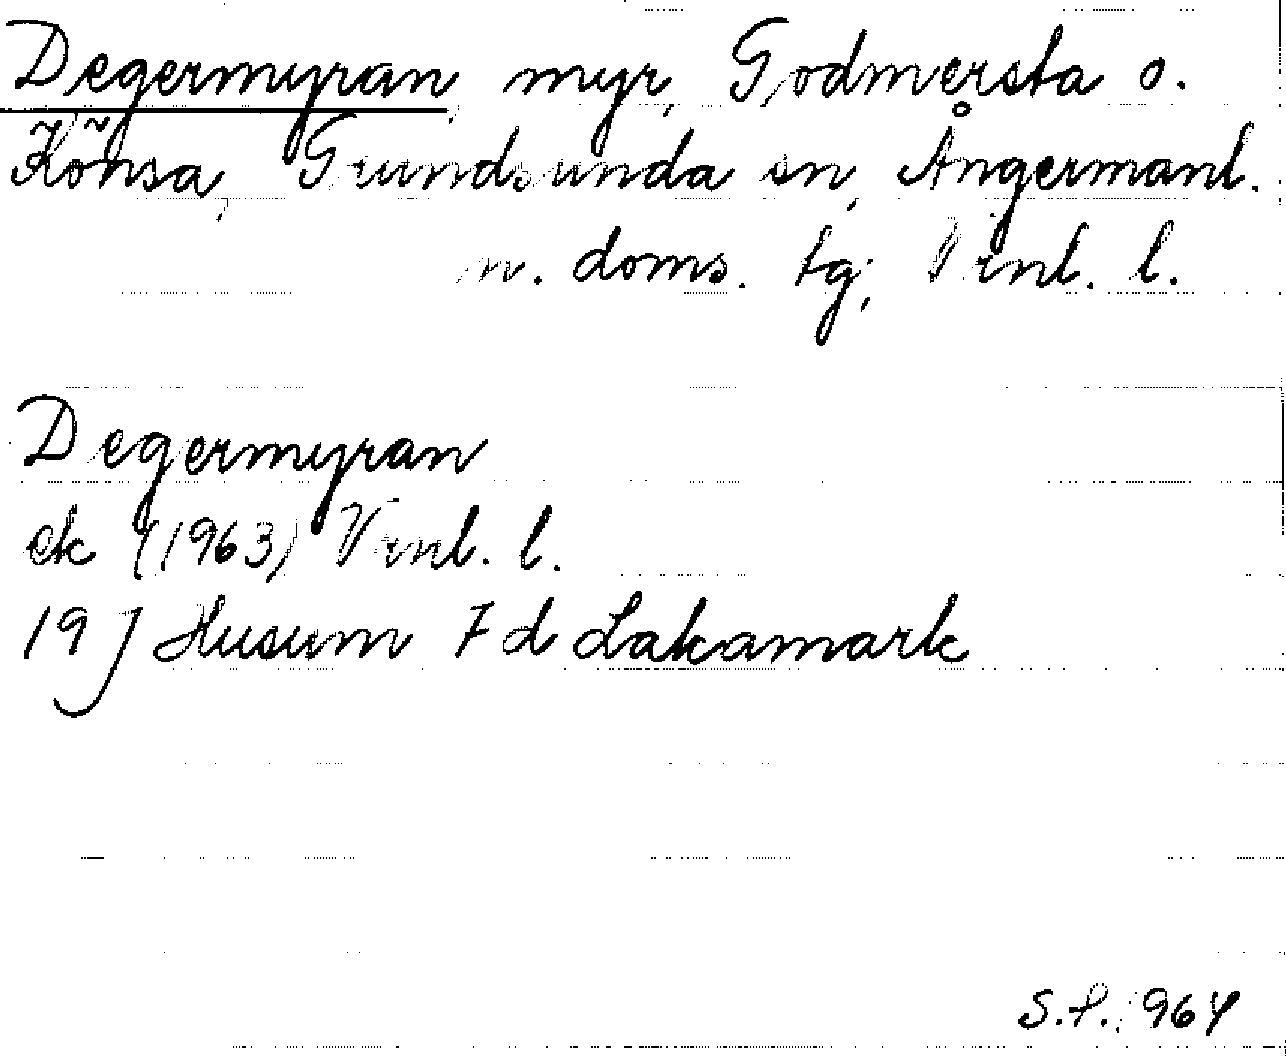 Degermyran, myr, Godmersta o.
Könsa, Grundsunda sn, Ångermanl.
n. doms. tg; Vrnl. l.
Degermyran
ek (1963) Vrnl. l.
19 J Husum 7 d Lakamark
S.P. 1964